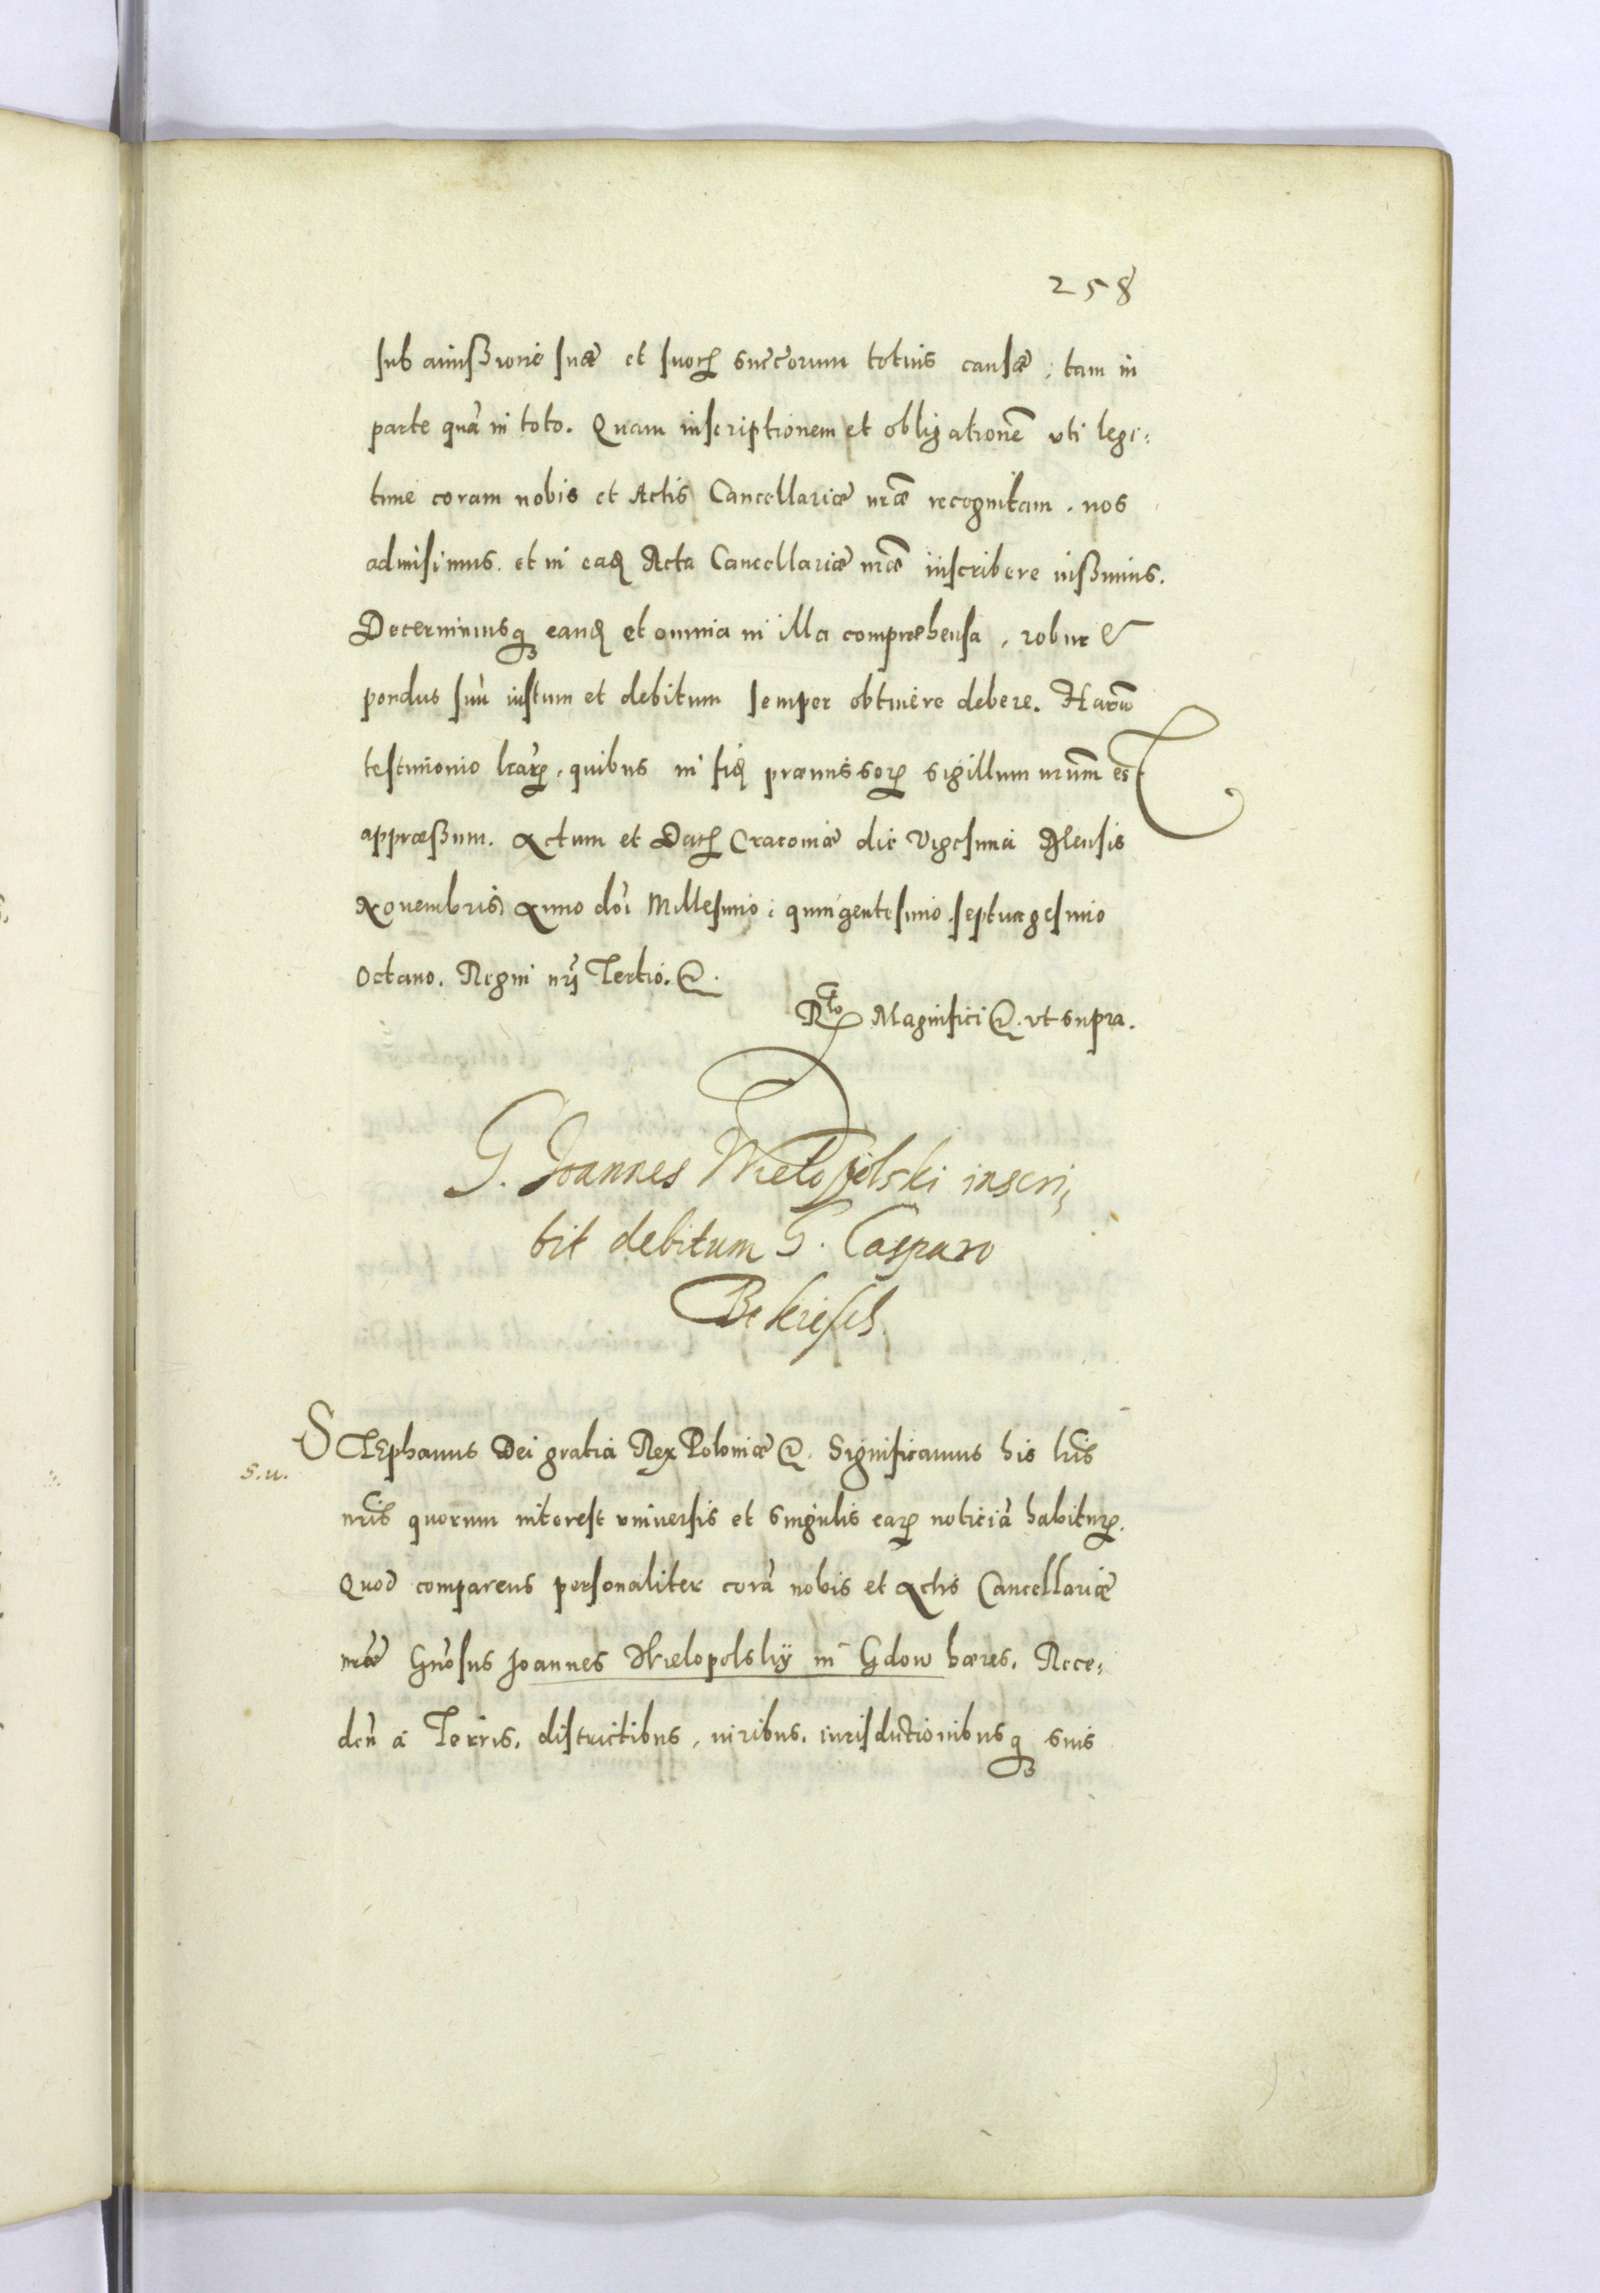 258
sub amissione suæ et suor[um] succ[ess]orum totius causæ, tam in
parte quā in toto. Quam inscriptionem et obligationē vti legi:
time coram nobis et Actis Cancellariæ nræ recognitam, nos
admisimus, et in eaḋ Acta Cancellariæ nræ inscribere iussimus.
Decernimusq[ue] eanḋ et omnia in illa compræhensa, robur &
pondus suū iustum et debitum semper obtinere debere. Harū
testimonio lrar[um], quibus in fiḋ præmissor[um] sigillum nrum est
appræssum. Actum et Dat[um] Cracoviæ die Vigesima Mensis
Novembris Anno dn̄i Millesimo quingentesimo septuagesimo
Octavo. Regni nri Tertio. &.
R[ela]tio Magnifici &. vt supra.
G. Joannes Wielopolski inscri:
bit debitum G. Casparo
Bekiesch
STEphanus Dei gratia Rex Poloniæ &. Significamus his lris
s.u.
nris quorum interest vniversis et singulis ear[um] noticiā habitur[is].
Quod comparens personaliter corā nobis et Actis Cancellariæ
nræ Gn̄osus Joannes Wielopolskÿ in Gdow hæres, Rece:
den̄ a Terris, districtibus, viribus, iurisdictionibusq[ue] suis